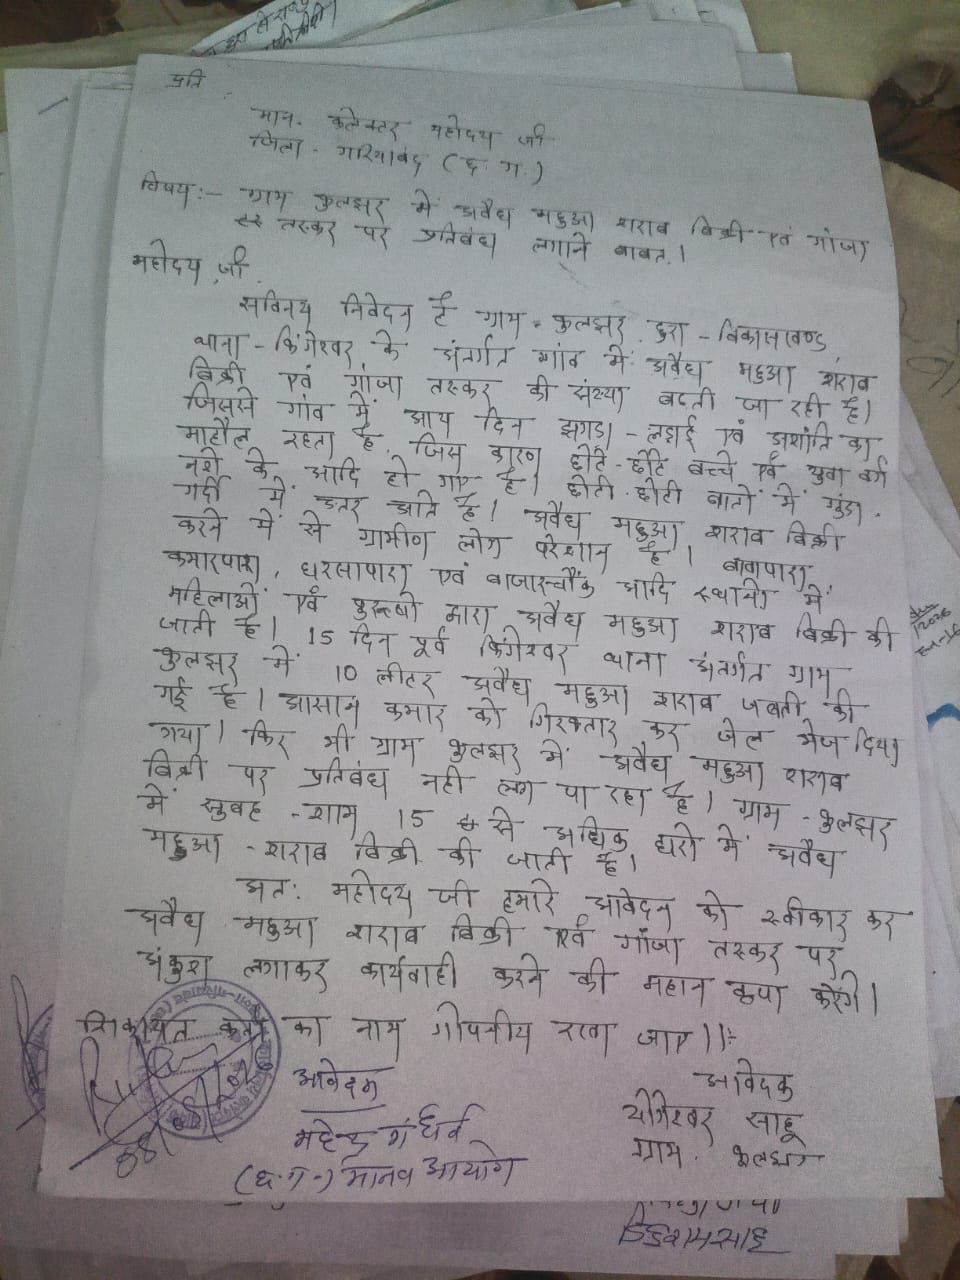 प्रति
मान. कलेक्टर महोदय जी
जिला - गरियाबंद (छ. ग.)
विषय:- ग्राम कुलझर में अवैध महुआ शराब बिक्री एवं गांजा
तस्कर पर प्रतिबंध लगाने बाबत।
महोदय जी.
सविनय निवेदन है ग्राम - कुलझर, छुरा - विकासखण्ड
थाना - फिंगेश्वर के अंतर्गत गांव में अवैध महुआ शराब
बिक्री एवं गांजा तस्कर की संख्या बढ़ती जा रही है।
जिससे गांव में आय दिन झगड़ा - लड़ाई एवं अशांति का
माहौल रहता है, जिस कारण छोटे-छोटे बच्चे एवं युवा वर्ग
नशे के आदि हो गए है। छोटी-छोटी बातों में गुंडा-
गर्दी में उतर आते है। अवैध महुआ शराब बिक्री
करने में से ग्रामीण लोग परेशान है।
कमारपारा, धरसापारा एवं बाजारचौंक आदि स्थानो में
महिलाओं एवं पुरूषो द्वारा अवैध महुआ शराब बिक्री की
जाती है। 15 दिन पूर्व फिंगेश्वर थाना अंतर्गत ग्राम
कुलझर में 10 लीटर अवैध महुआ शराब जबती की
गई है। आसान कमार को गिरफ्तार कर जेल भेज दिया
गया। फिर भी ग्राम कुलझर में अवैध महुआ शराब
बिक्री पर प्रतिबंध नही लग पा रहा है। ग्राम - कुलझर
में सुबह - शाम 15 से अधिक घरो में अवैध
महुआ - शराब बिक्री की जाती है।
अतः महोदय जी हमारे आवेदन को स्वीकार कर
अवैध महुआ शराब बिक्री एवं गाँजा तस्कर पर
अंकुश लगाकर कार्यवाही करने की महान कृपा करेंगे।
का नाम गोपनीय रखा जाए।।
आवेदक
योगेश्वर साहू
ग्राम. कुलझर
आवेदक
महेन्द्र गंधर्व
(छ.ग.) मानव आयोग